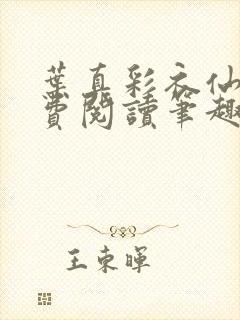 葉真彩衣仙
費閱讀筆趣
王東暉